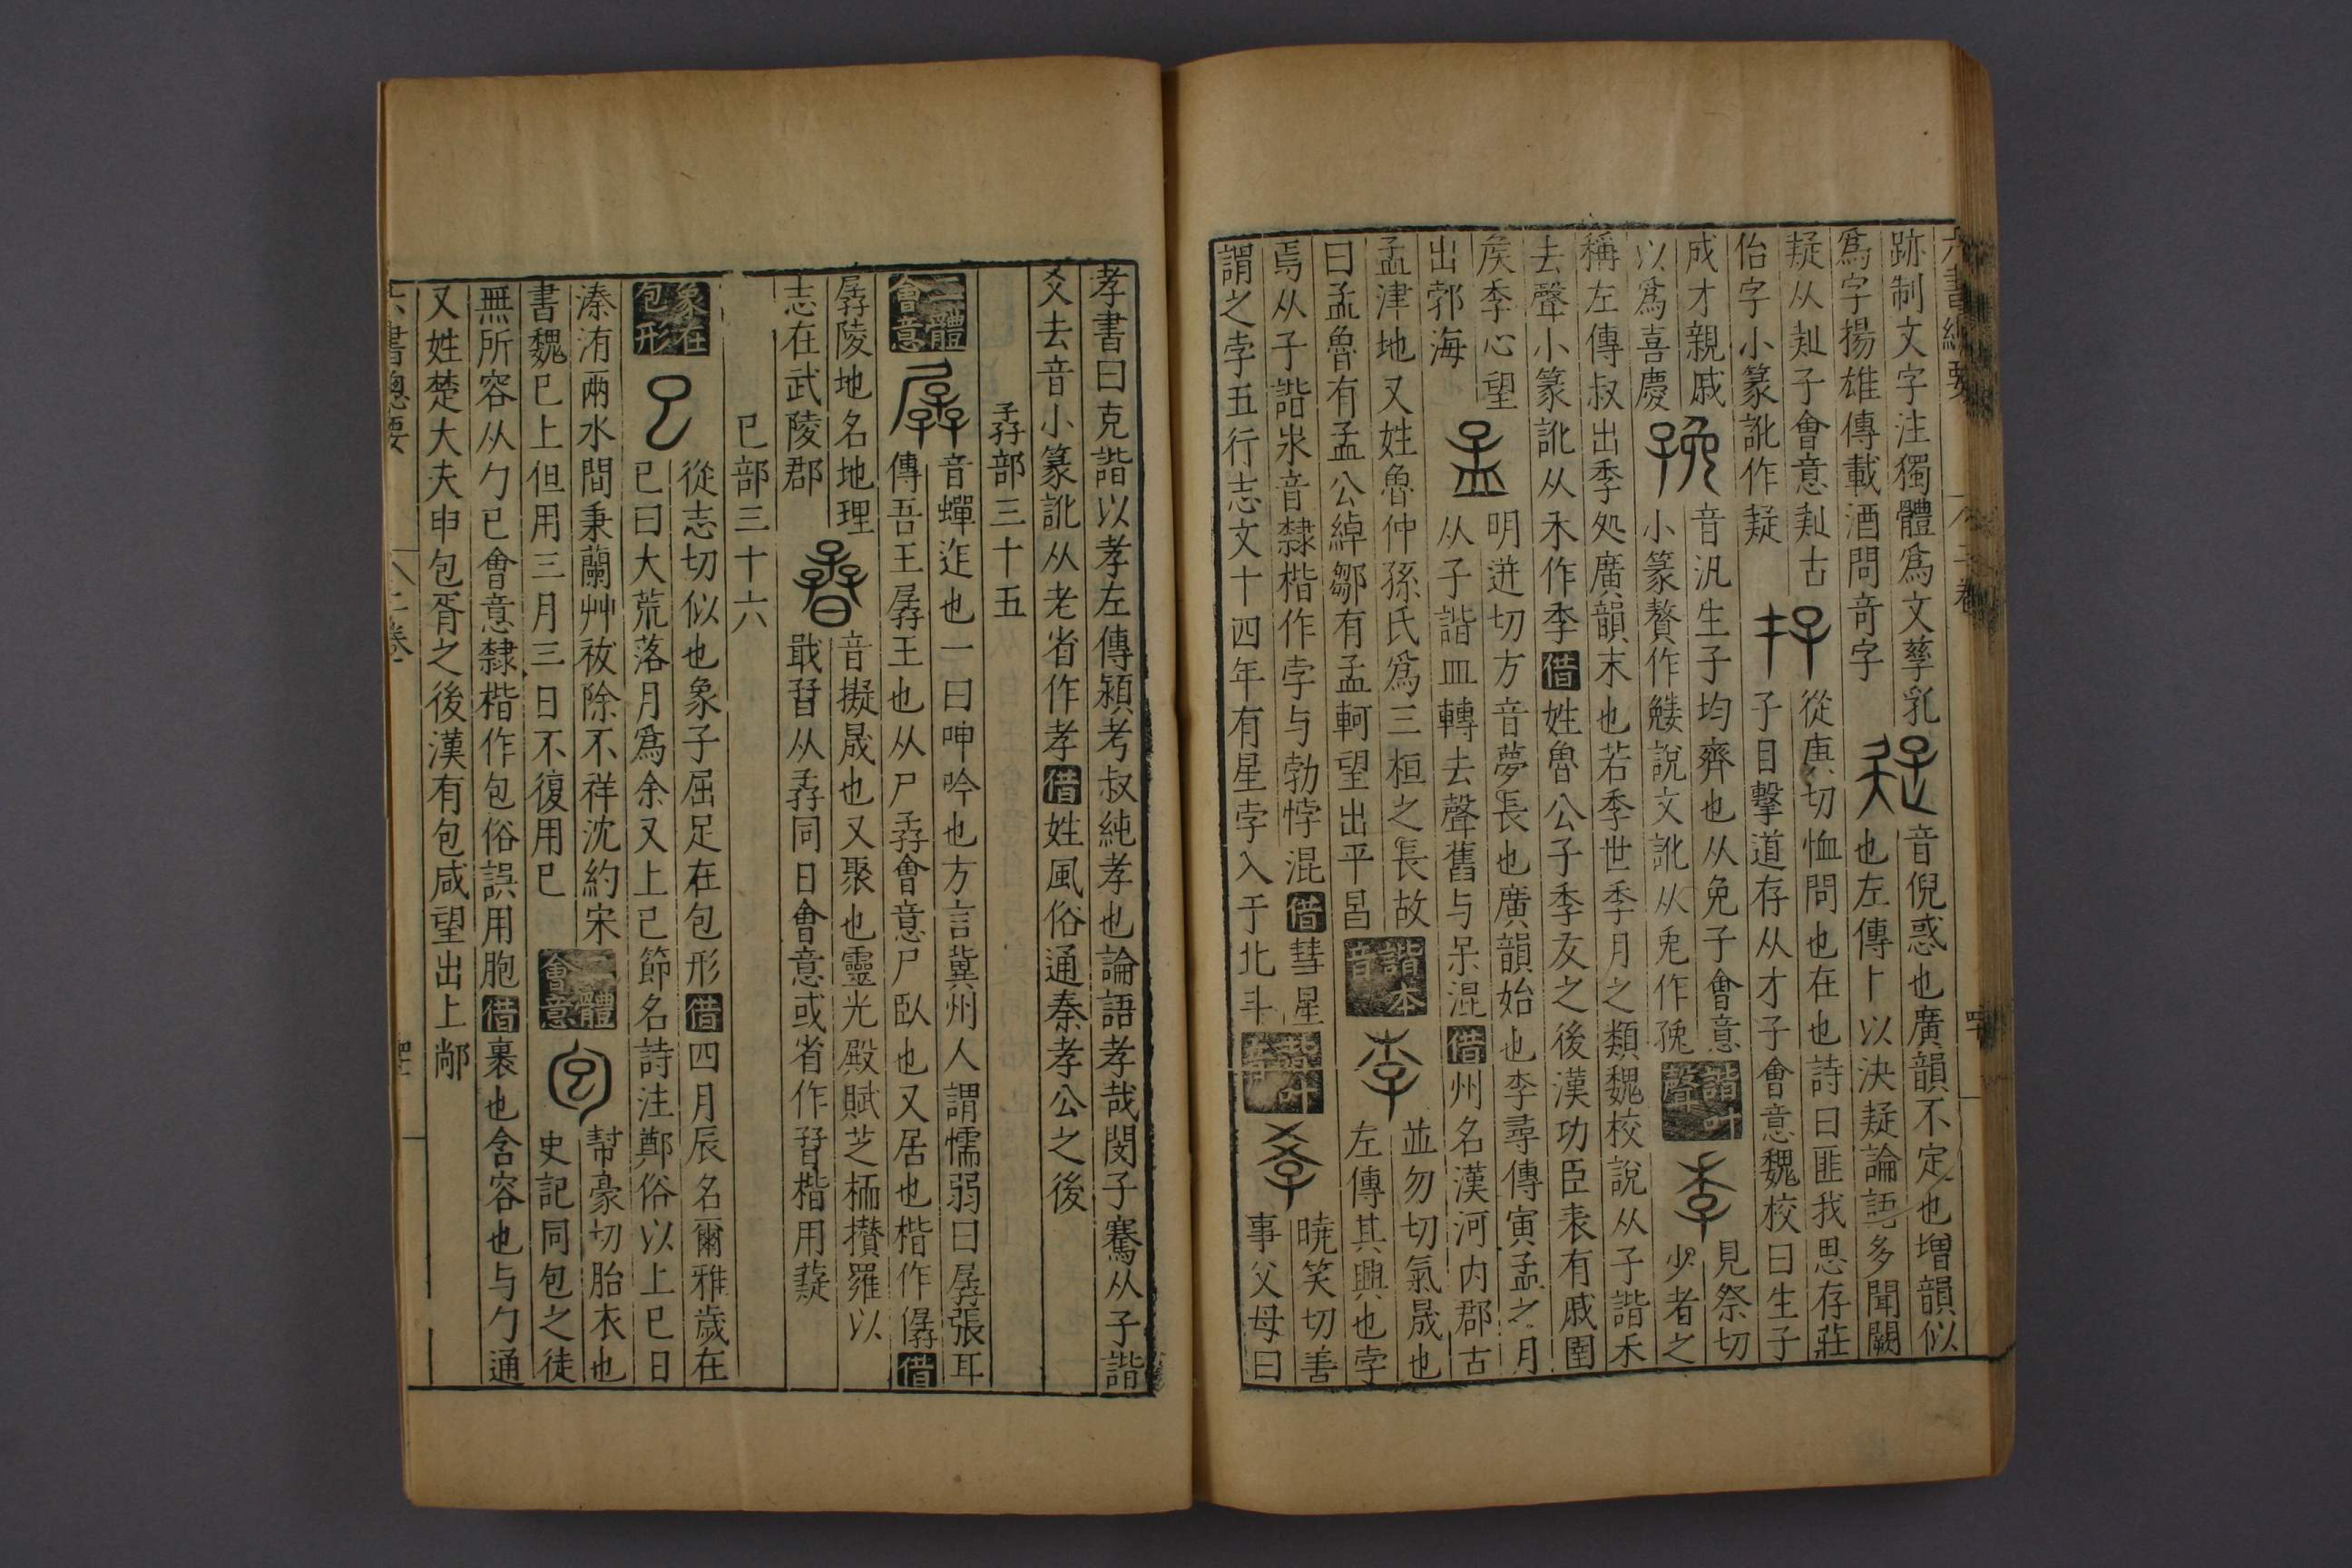 六書總要
跡制文字注獨體爲文孳乳
音倪惑也廣韻不定也增韻似
爲字揚雄傳載酒問奇字
也左傳卜以決疑論語多聞闕
疑从子會意古
從唐切恤問也在也詩曰匪我思存莊
佁字小篆訛作
子目擊道存从才子會意魏校曰生子
成才親戚
音汎生子均齊也从免子會意
以爲喜慶
小篆贅作說文訛从兎作
諧叶聲
見祭切
少者之
稱左傳叔出季処廣韻末也若季世季月之類魏校說从子諧禾
去聲小篆訛从禾作季借姓魯公子季友之後漢功臣表有戚圉
矦季心望
明迸切方音夢長也廣韻始也李尋傳寅孟之月
出郛海
从子諧皿轉去聲舊与呆混借州名漢河内郡古
孟津地又姓魯仲孫氏爲三桓之長故
曰孟魯有孟公綽鄒有孟軻望出平昌
諧本音
並勿切氣晟也
左傳其興也孛
焉从子諧音隸楷作孛与勃悖混借彗星
謂之孛五行志文十四年有星孛入于北斗
曉笑切善
事父母曰
孝書曰克諧以孝左傳潁考叔純孝也論語孝哉閔子騫从子諧
爻去音小篆訛从老省作孝借姓風俗通秦孝公之後
孨部三十五
二體會意
音蟬迮也一曰呻吟也方言冀州人謂懦弱曰孱張耳
傳吾王孱王也从尸孨會意尸臥也又居也楷作僝借
孱陵地名地理
音擬晟也又聚也靈光殿賦芝栭攢羅以
志在武陵郡
戢孴从孨同日會意或省作孴楷用薿
巳部三十六
象在包形
從志切似也象子屈足在包形借四月辰名爾雅歲在
巳曰大荒落月爲余又上巳節名詩注鄭俗以上巳日
溱洧兩水間秉蘭艸祓除不祥沈約宋
書魏巳上但用三月三日不復用巳
二體會意
幇豪切胎衣也
史記同包之徒
無所容从勹巳會意隸楷作包俗誤用胞借裹也含容也与勹通
又姓楚大夫申包胥之後漢有包咸望出上鄗
六書總要